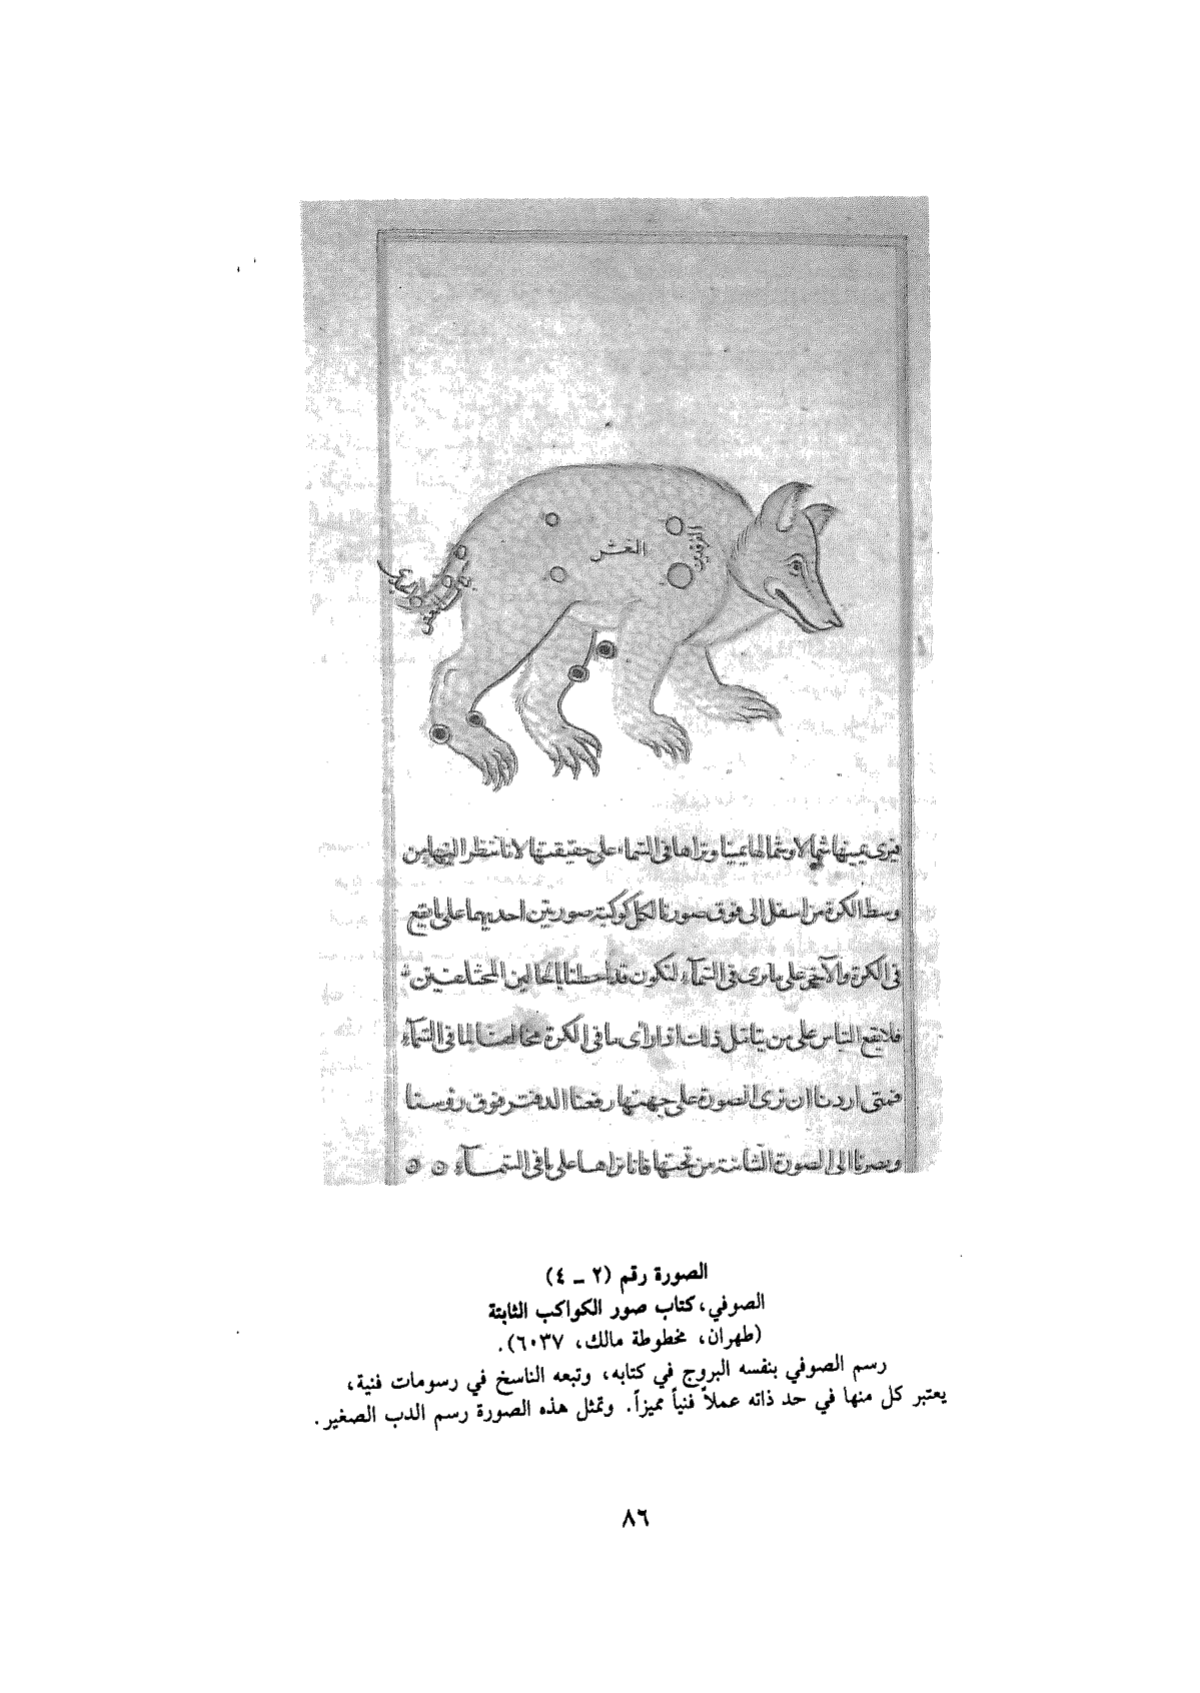 النعش
الفرقدين
الجدي
فيرى يمينها شمالا وشمالها يمينا ونراها في السماء على حقيقتها لانا ننظر اليها من
وسط الكرة من اسفل الى فوق صورنا لكل كوكبة صورتين احديهما على ما تقع
في الكرة والاخرى على ما يرى في السمآء لنكون قد احطنا بالحالين المختلفين
فلا يقع التباس على من يتامل ذلك اذا رأى ما في الكرة مخالفا لما في السمآء
فمتى اردنا ان نرى الصورة على جهتها رفعنا الدفتر فوق رؤسنا
وبصرنا الى الصورة الثانية من تحتها فانا نراها على ما في السمـــآء
الصورة رقم (٢ ـ ٤)
الصوفي، كتاب صور الكواكب الثابتة
(طهران، مخطوطة مالك، ٦٠٣٧).
رسم الصوفي بنفسه البروج في كتابه، وتبعه الناسخ في رسومات فنية،
يعتبر كل منها في حد ذاته عملاً فنياً مميزاً. وتمثل هذه الصورة رسم الدب الصغير.
٨٦